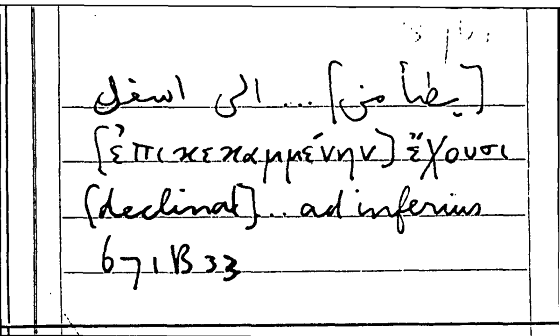 [يطأ من] ... الى اسفل
[ἐπικεκαμμένην] ἔχουσι
[declinat] ... ad inferius
671B33